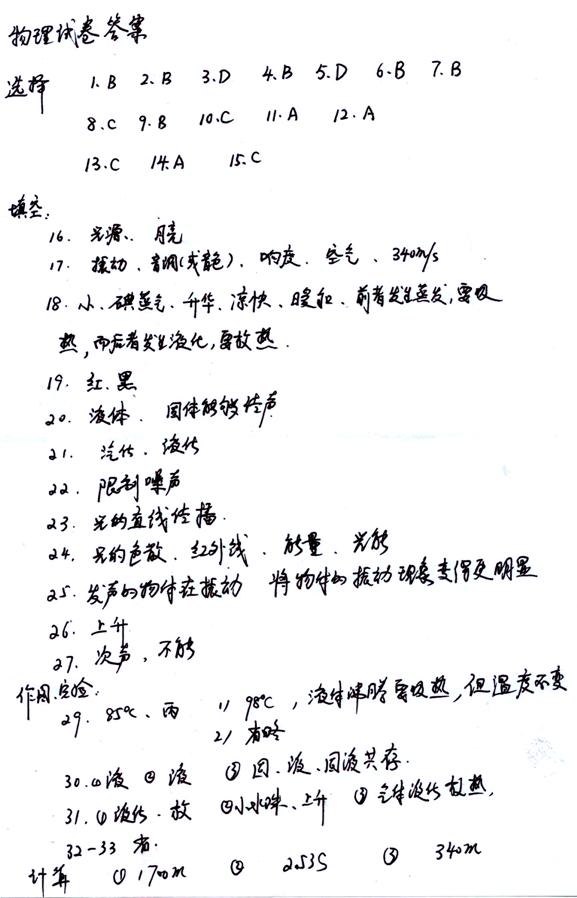 物理试卷答案
选择 1.B 2.B 3.D 4.B 5.D 6.B 7.B
8.C 9.B 10.C 11.A 12.A
13.C 14.A 15.C
填空:
16. 光源、月亮
17. 振动、音调(或音色)、响度、空气、340m/s
18. 小、碘蒸气、升华、凉快、暖和、前者发生蒸发,要吸
热,而后者发生液化,要放热.
19. 红、黑
20. 液体、固体能够传声
21. 汽化、液化
22. 限制噪声
23. 光的直线传播.
24. 光的色散、红外线、能量、光能
25. 发声的物体在振动 将物体的振动现象变得更明显
26. 上升
27. 次声,不能
作图.实验:
29. 85℃、丙 1) 98℃ ,液体沸腾要吸热,但温度不变
2)
30.(1)液 ② 液 ③ 固、液、固液共存.
31.(1)液化、放 ②小水珠、上升 ③ 气体液化放热,
32-33 省.
计算 ① 1700m ② 2.53S ③ 340m